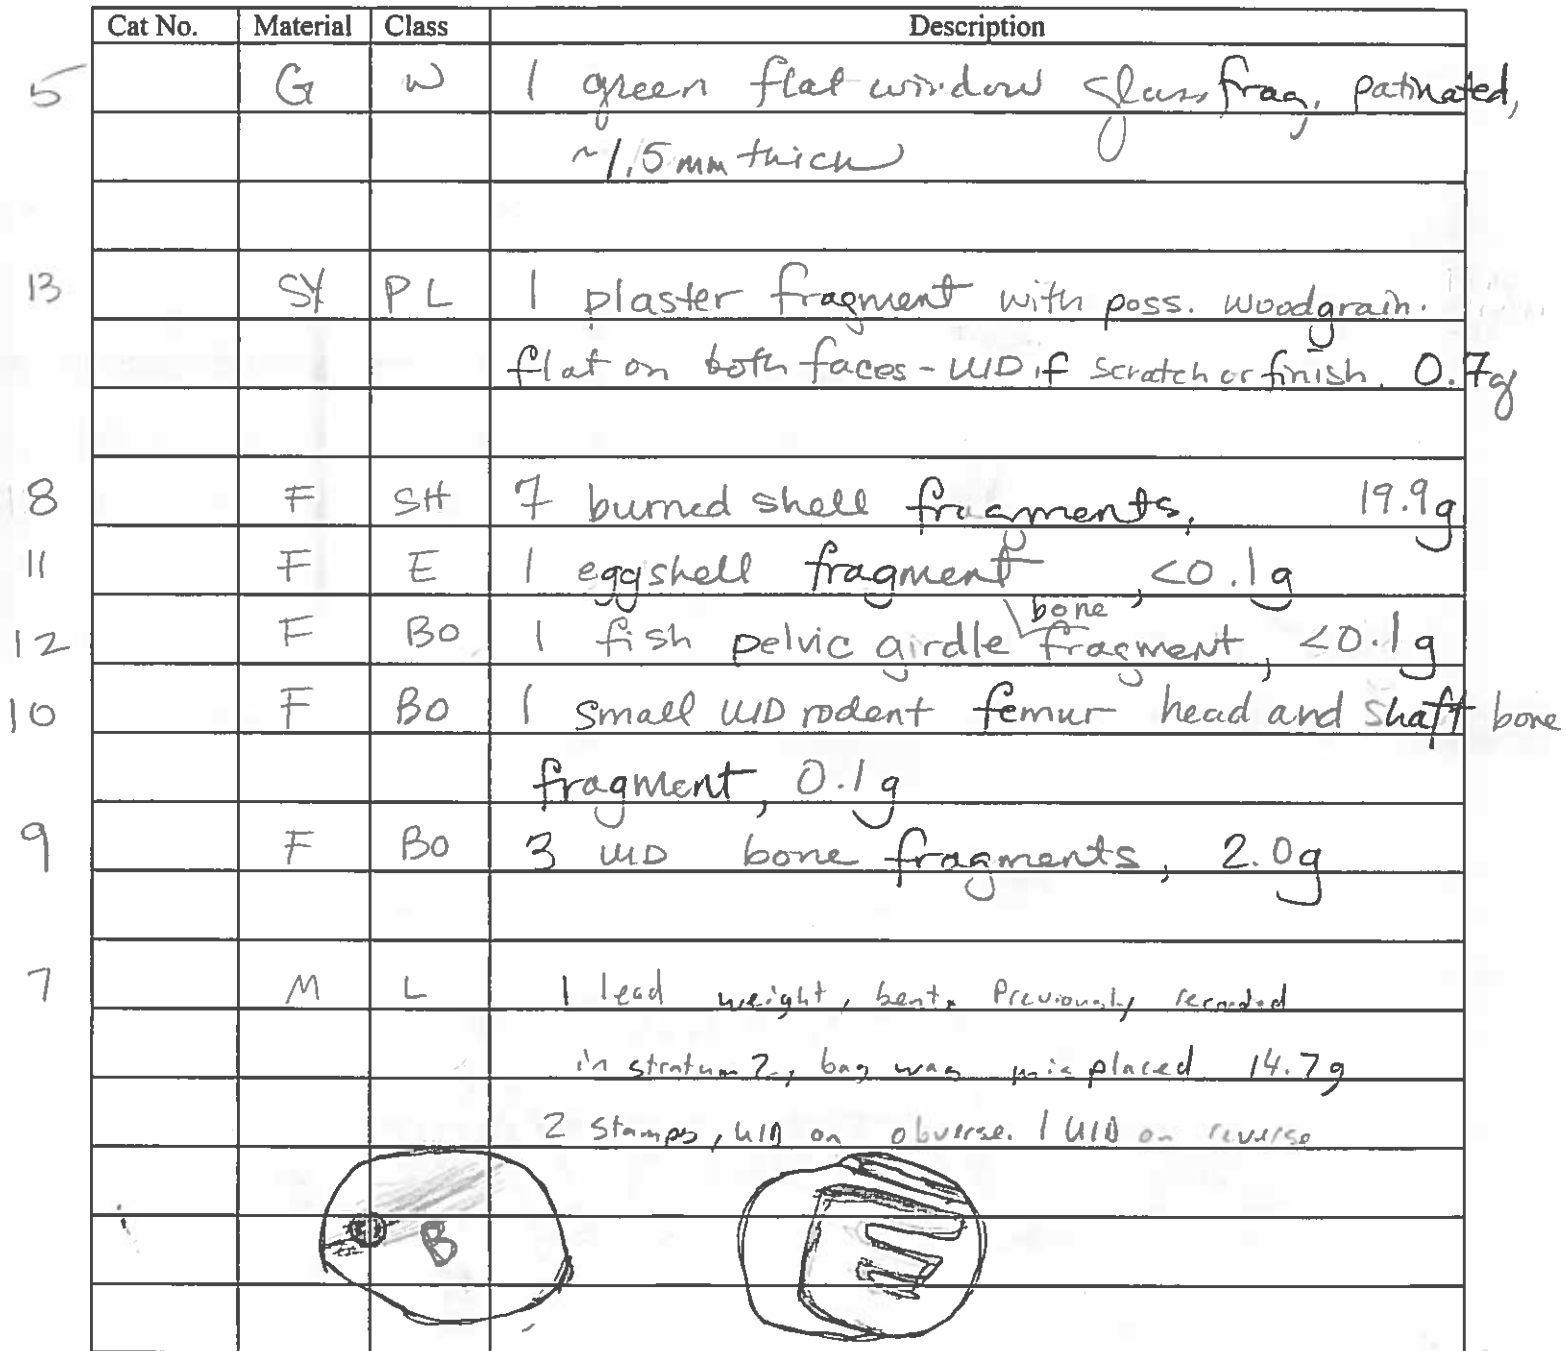 Cat No. Material Class Description
5 G W 1 green flat window glass frag, patinated,
~1.5mm thick
13 SY PL 1 plaster fragment with poss. woodgrain.
flat on both faces - UID if scratch or finish. 0.7g
18 F SH 7 burned shell fragments, 19.9g
11 F E 1 eggshell fragment, <0.1g
12 F BO 1 fish pelvic girdle bone fragment, <0.1g
10 F BO 1 small UID rodent femur head and shaft bone
fragment, 0.1g
9 F BO 3 UID bone fragments, 2.0g
7 M L 1 lead weight, bent. Previously recorded
in stratum 2, bag was misplaced 14.7g
2 stamps, UID on obverse. 1 UID on reverse
B